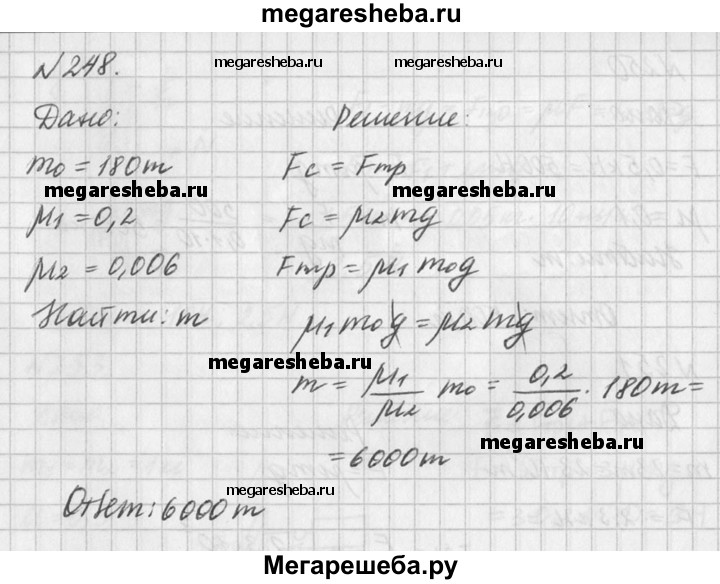 megaresheba.ru
№248.
megaresheba.ru megaresheba.ru
Дано: Решение:
m₀ = 180т Fc = Fтр
megaresheba.ru megaresheba.ru
μ1 = 0,2 Fc = μ2mg
μ2 = 0,006 Fтр = μ1m₀g
Найти: m μ1m₀g = μ2mg
megaresheba.ru
m = μ1/μ2 m₀ = 0,2/0,006 · 180т =
megaresheba.ru
= 6000т
megaresheba.ru
Ответ: 6000т
Мегарешеба.ру